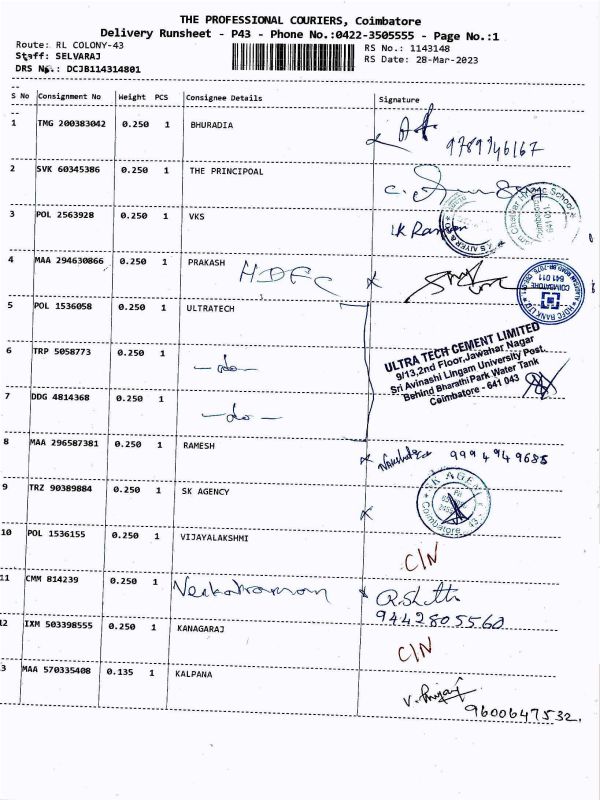 THE PROFESSIONAL COURIERS, Coimbatore
Delivery Runsheet - P43 - Phone No.:0422-3505555 - Page No.:1
Route: RL COLONY-43
RS No.: 1143148
Staff: SELVARAJ
RS Date: 28-Mar-2023
DRS No.: DCJB114314801
S No Consignment No Weight PCS Consignee Details Signature
1 TMG 200383042 0.250 1 BHURADIA
9789746167
2 SVK 60345386 0.250 1 THE PRINCIPOAL
3 POL 2563928 0.250 1 VKS
4 MAA 294630866 0.250 1 PRAKASH HDFC
HDFC BANK LTD
COIMBATORE
641 011
5 POL 1536058 0.250 1 ULTRATECH
ULTRA TECH CEMENT LIMITED
9/13,2nd Floor,Jawahar Nagar
Sri Avinashi Lingam University Post,
Behind BharathiPark Water Tank
Coimbatore - 641 043
6 TRP 5058773 0.250 1 -do-
7 DDG 4814368 0.250 1 -do-
8 MAA 296587381 0.250 1 RAMESH
9994949685
9 TRZ 90389884 0.250 1 SK AGENCY
Coimbatore - 43
10 POL 1536155 0.250 1 VIJAYALAKSHMI C/N
11 CMM 814239 0.250 1 Venkatraman
9442805560
12 IXM 503398555 0.250 1 KANAGARAJ C/N
3 MAA 570335408 0.135 1 KALPANA
9600647532.